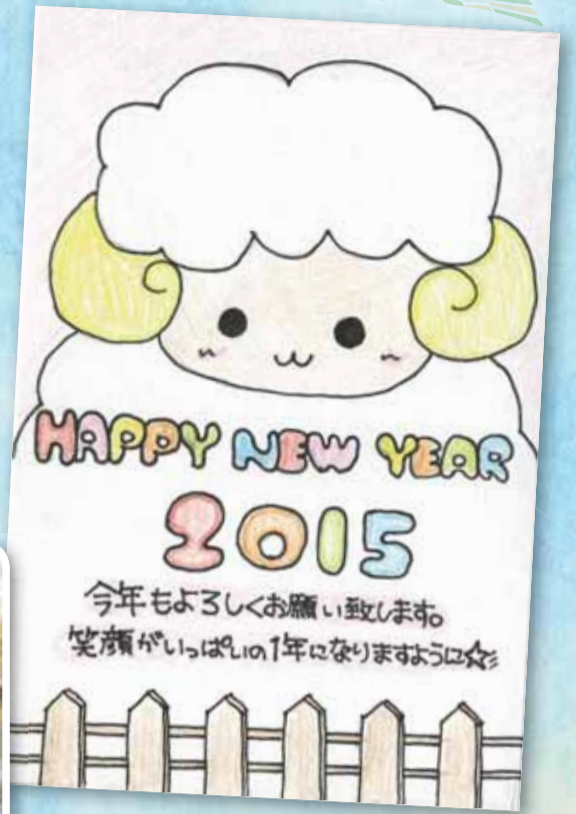 HAPPY NEW YEAR
2015
今年もよろしくお願い致します。
笑顔がいっぱいの1年になりますように☆彡